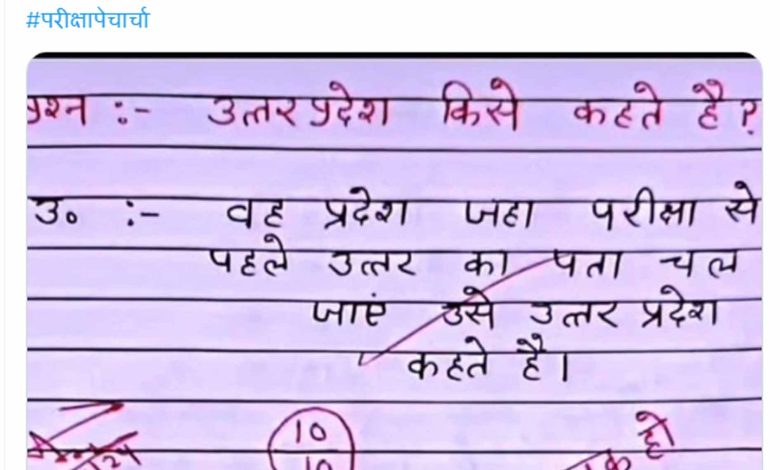 #परीक्षापेचार्चा
प्रश्न :- उत्तर प्रदेश किसे कहते है?
उ० :- वह प्रदेश जहा परीक्षा से
पहले उत्तर का पता चल
जाएं उसे उत्तर प्रदेश
कहते है।
10
10
हो